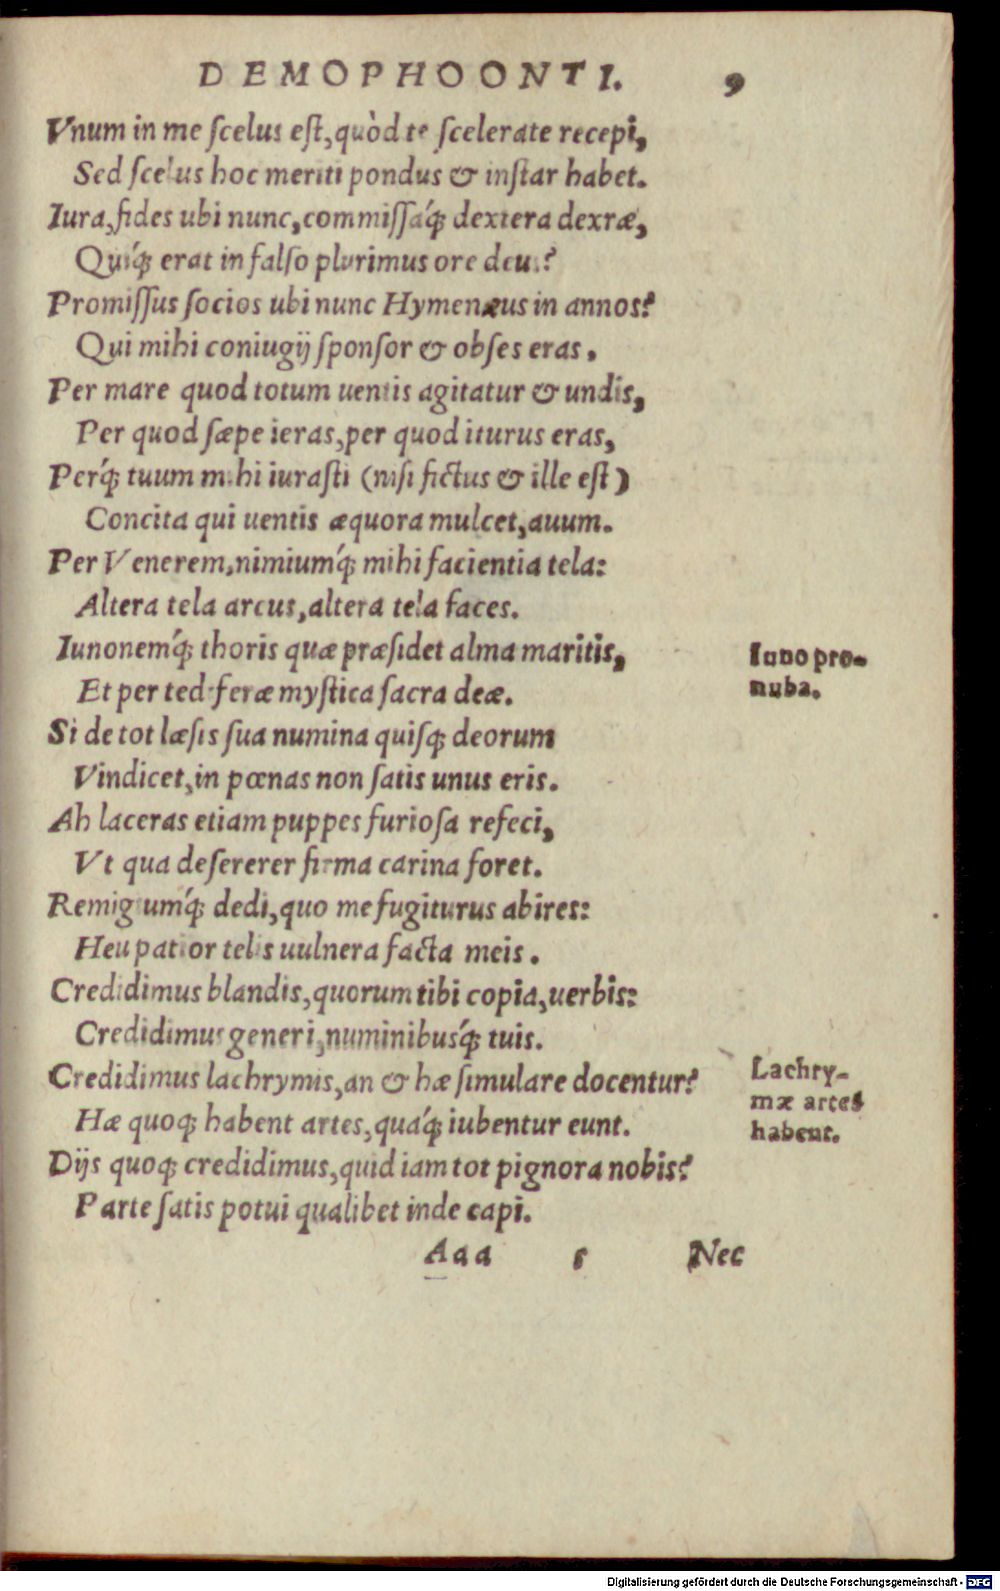 DEMOPHOONTI. 9
Vnum in me ſcelus eſt, quòd te ſcelerate recepi,
Sed ſcelus hoc meriti pondus & inſtar habet.
Iura, fides ubi nunc, commiſſaq́; dextera dextræ,
Quiq́; erat in falſo plurimus ore deus?
Promiſſus ſocios ubi nunc Hymenæus in annos?
Qui mihi coniugij ſponſor & obſes eras.
Per mare quod totum uentis agitatur & undis,
Per quod ſæpe ieras, per quod iturus eras,
Perq́; tuum mihi iuraſti (niſi fictus & ille eſt)
Concita qui uentis æquora mulcet, auum.
Per Venerem, nimiumq́; mihi facientia tela:
Altera tela arcus, altera tela faces.
Iunonemq́; thoris quæ præſidet alma maritis,
Iuno pro-
nuba.
Et per tediferæ myſtica ſacra deæ.
Si de tot læſis ſua numina quiſq; deorum
Vindicet, in pœnas non ſatis unus eris.
Ah laceras etiam puppes furioſa refeci,
Vt qua deſererer firma carina foret.
Remigiumq́; dedi, quo me fugiturus abires:
Heu patior telis uulnera facta meis.
Credidimus blandis, quorum tibi copia, uerbis:
Credidimus generi, numinibusq́; tuis.
Credidimus lachrymis, an & hæ ſimulare docentur?
Lachry-
mæ artes
habent.
Hæ quoq; habent artes, quaq́; iubentur eunt.
Dijs quoq; credidimus, quid iam tot pignora nobis?
Parte ſatis potui qualibet inde capi.
Aaa 5 Nec
Digitalisierung gefördert durch die Deutsche Forschungsgemeinschaft - DFG